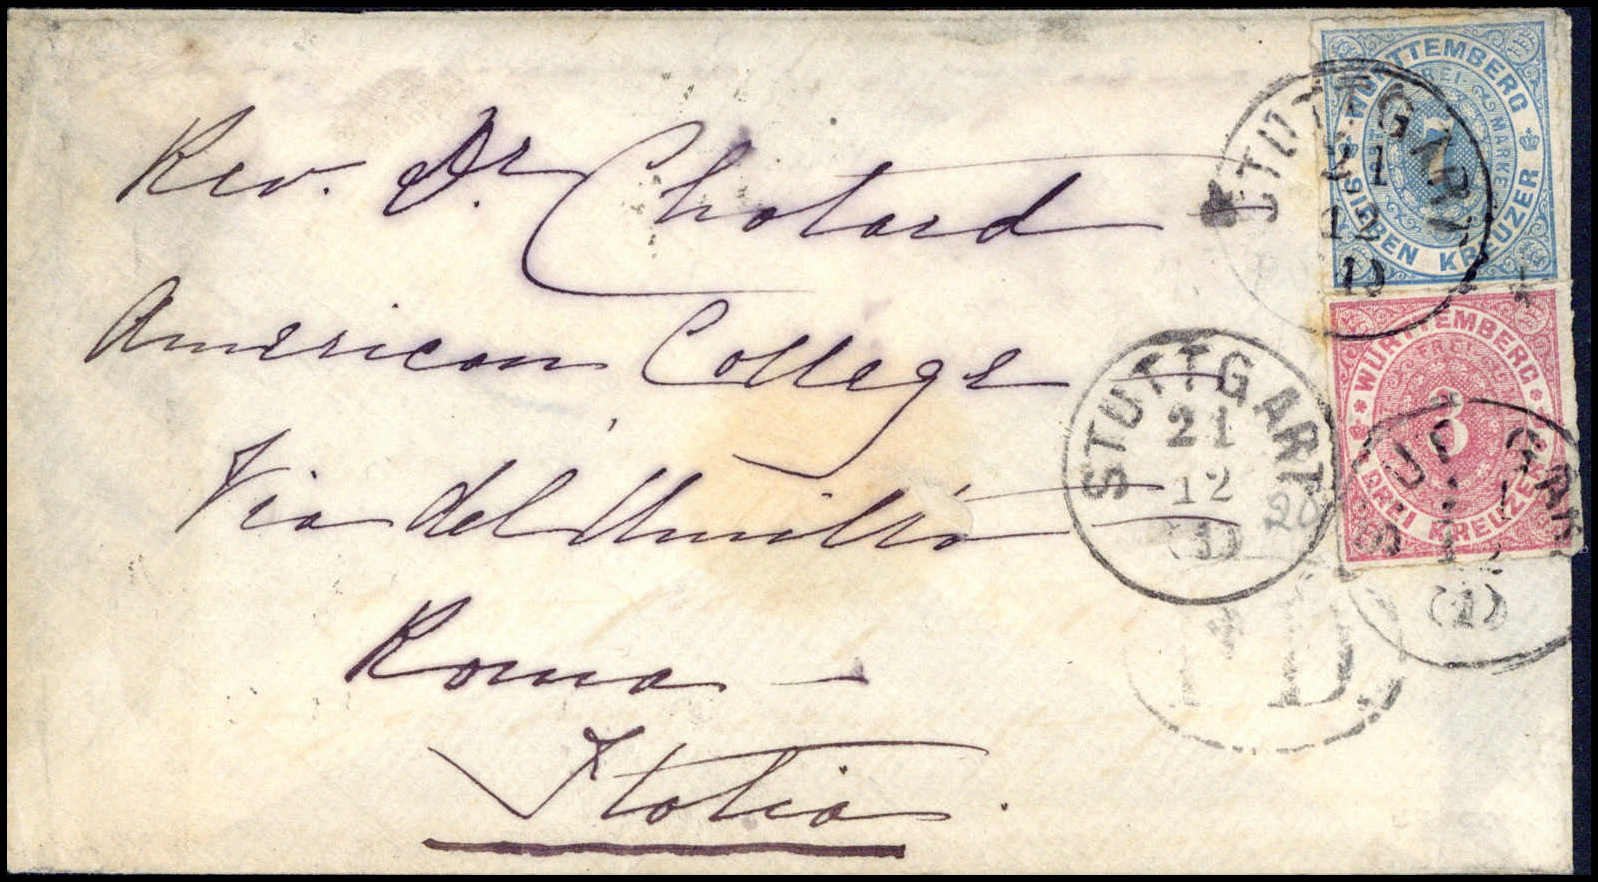 Rev. Dr Chatard
American College
Via dell'Umiltà
Roma —
Italia.
WÜRTTEMBERG
FREI MARKE
7
SIEBEN KREUZER
STUTTGART
21
12
(1)
WÜRTTEMBERG
FREI
3
DREI KREUZER
STUTTGART
21
12
(1)
20
STUTTGART
(1)
P.D.